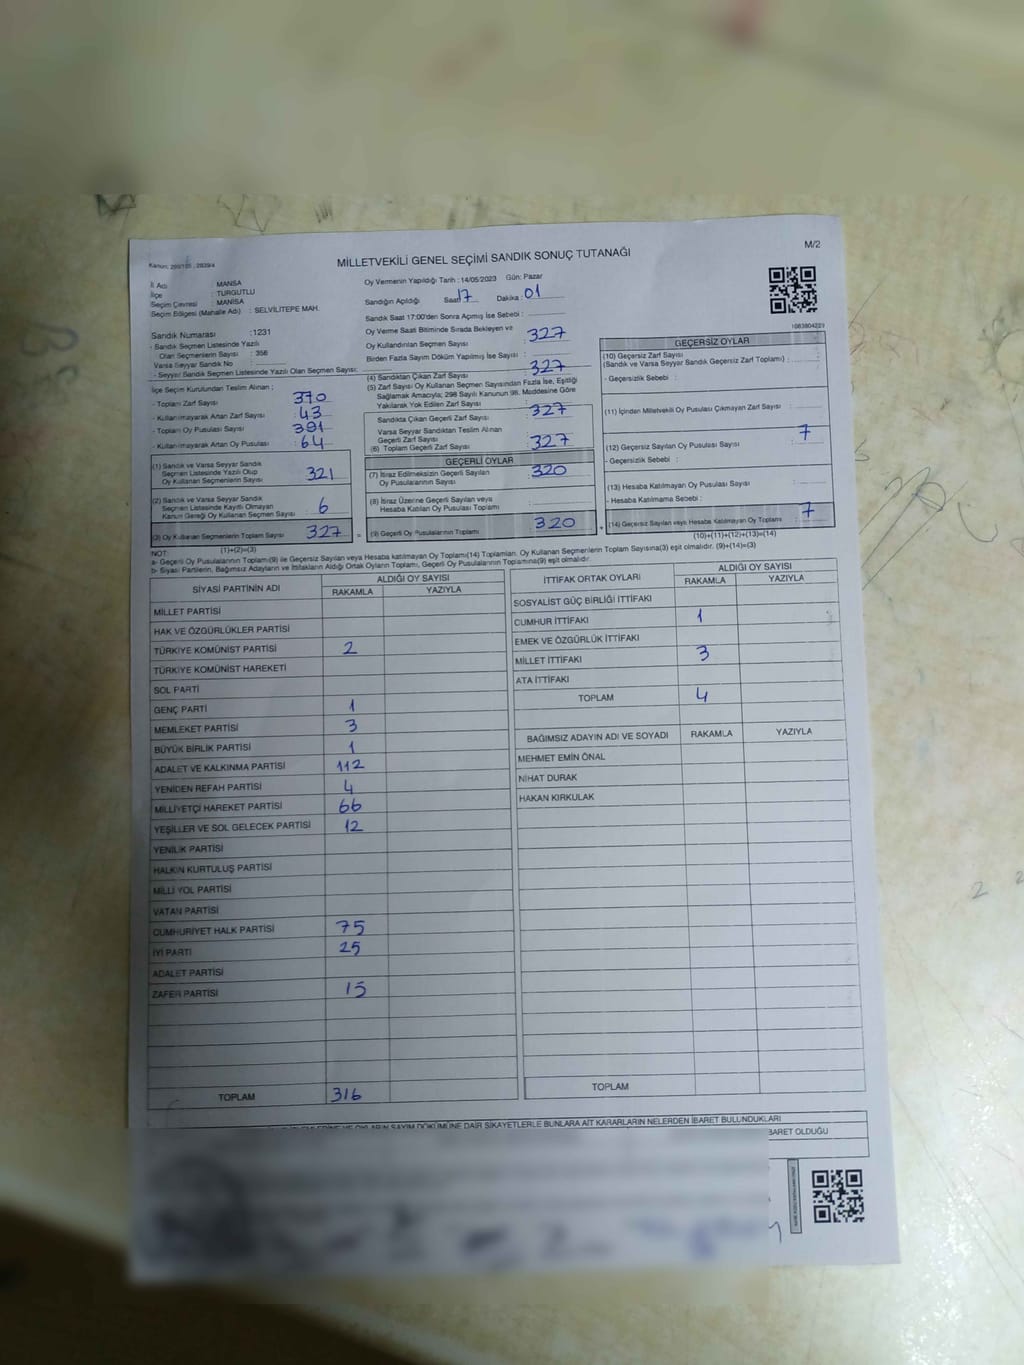 M/2
Kanun: 298/105, 2839/4
MİLLETVEKİLİ GENEL SEÇİMİ SANDIK SONUÇ TUTANAĞI
İl Adı : MANİSA
İlçe : TURGUTLU
Seçim Çevresi : MANİSA
Seçim Bölgesi (Mahalle Adı) : SELVİLİTEPE MAH.
Sandık Numarası : 1231
- Sandık Seçmen Listesinde Yazılı
Olan Seçmenlerin Sayısı : 356
Varsa Seyyar Sandık No :
- Seyyar Sandık Seçmen Listesinde Yazılı Olan Seçmen Sayısı:
Oy Vermenin Yapıldığı Tarih : 14/05/2023 Gün: Pazar
Sandığın Açıldığı Saat: 17 Dakika: 01
Sandık Saat 17:00'den Sonra Açılmış İse Sebebi :
Oy Verme Saati Bitiminde Sırada Bekleyen ve
Oy Kullandırılan Seçmen Sayısı : 327
Birden Fazla Sayım Döküm Yapılmış İse Sayısı :
1083804223
İlçe Seçim Kurulundan Teslim Alınan ;
- Toplam Zarf Sayısı : 370
- Kullanılmayarak Artan Zarf Sayısı : 43
- Toplam Oy Pusulası Sayısı : 391
- Kullanılmayarak Artan Oy Pusulası : 64
(1) Sandık ve Varsa Seyyar Sandık
Seçmen Listesinde Yazılı Olup
Oy Kullanan Seçmenlerin Sayısı : 321
(2) Sandık ve Varsa Seyyar Sandık
Seçmen Listesinde Kayıtlı Olmayan
Kanun Gereği Oy Kullanan Seçmen Sayısı : 6
(3) Oy Kullanan Seçmenlerin Toplam Sayısı : 327
(1)+(2)=(3)
(4) Sandıktan Çıkan Zarf Sayısı : 327
(5) Zarf Sayısı Oy Kullanan Seçmen Sayısından Fazla İse, Eşitliği
Sağlamak Amacıyla; 298 Sayılı Kanunun 98. Maddesine Göre
Yakılarak Yok Edilen Zarf Sayısı :
Sandıkta Çıkan Geçerli Zarf Sayısı : 327
Varsa Seyyar Sandıktan Teslim Alınan
Geçerli Zarf Sayısı :
(6) Toplam Geçerli Zarf Sayısı : 327
GEÇERLİ OYLAR
(7) İtiraz Edilmeksizin Geçerli Sayılan
Oy Pusulalarının Sayısı : 320
(8) İtiraz Üzerine Geçerli Sayılan veya
Hesaba Katılan Oy Pusulası Toplamı :
(9) Geçerli Oy Pusulalarının Toplamı : 320
GEÇERSİZ OYLAR
(10) Geçersiz Zarf Sayısı
(Sandık ve Varsa Seyyar Sandık Geçersiz Zarf Toplamı) :
- Geçersizlik Sebebi :
(11) İçinden Milletvekili Oy Pusulası Çıkmayan Zarf Sayısı :
(12) Geçersiz Sayılan Oy Pusulası Sayısı : 7
- Geçersizlik Sebebi :
(13) Hesaba Katılmayan Oy Pusulası Sayısı :
- Hesaba Katılmama Sebebi :
(14) Geçersiz Sayılan veya Hesaba Katılmayan Oy Toplamı : 7
(10)+(11)+(12)+(13)=(14)
NOT:
a- Geçerli Oy Pusulalarının Toplamı(9) ile Geçersiz veya Hesaba katılmayan Oy Toplamı(14) Toplamları, Oy Kullanan Seçmenlerin Toplam Sayısına(3) eşit olmalıdır. (9)+(14)=(3)
b- Siyasi Partilerin, Bağımsız Adayların ve İttifakların Aldığı Ortak Oyların Toplamı, Geçerli Oy Pusulalarının Toplamına(9) eşit olmalıdır.
SİYASİ PARTİNİN ADI ALDIĞI OY SAYISI
RAKAMLA YAZIYLA
MİLLET PARTİSİ
HAK VE ÖZGÜRLÜKLER PARTİSİ
TÜRKİYE KOMÜNİST PARTİSİ 2
TÜRKİYE KOMÜNİST HAREKETİ
SOL PARTİ
GENÇ PARTİ 1
MEMLEKET PARTİSİ 3
BÜYÜK BİRLİK PARTİSİ 1
ADALET VE KALKINMA PARTİSİ 112
YENİDEN REFAH PARTİSİ 4
MİLLİYETÇİ HAREKET PARTİSİ 66
YEŞİLLER VE SOL GELECEK PARTİSİ 12
YENİLİK PARTİSİ
HALKIN KURTULUŞ PARTİSİ
MİLLİ YOL PARTİSİ
VATAN PARTİSİ
CUMHURİYET HALK PARTİSİ 75
İYİ PARTİ 25
ADALET PARTİSİ
ZAFER PARTİSİ 15
TOPLAM 316
İTTİFAK ORTAK OYLARI ALDIĞI OY SAYISI
RAKAMLA YAZIYLA
SOSYALİST GÜÇ BİRLİĞİ İTTİFAKI
CUMHUR İTTİFAKI 1
EMEK VE ÖZGÜRLÜK İTTİFAKI
MİLLET İTTİFAKI 3
ATA İTTİFAKI
TOPLAM 4
BAĞIMSIZ ADAYIN ADI VE SOYADI RAKAMLA YAZIYLA
MEHMET EMİN ÖNAL
NİHAT DURAK
HAKAN KIRKULAK
TOPLAM
OYLARIN SAYIM DÖKÜMÜNE DAİR ŞİKAYETLERLE BUNLARA AİT KARARLARIN NELERDEN İBARET BULUNDUKLARI
İBARET OLDUĞU